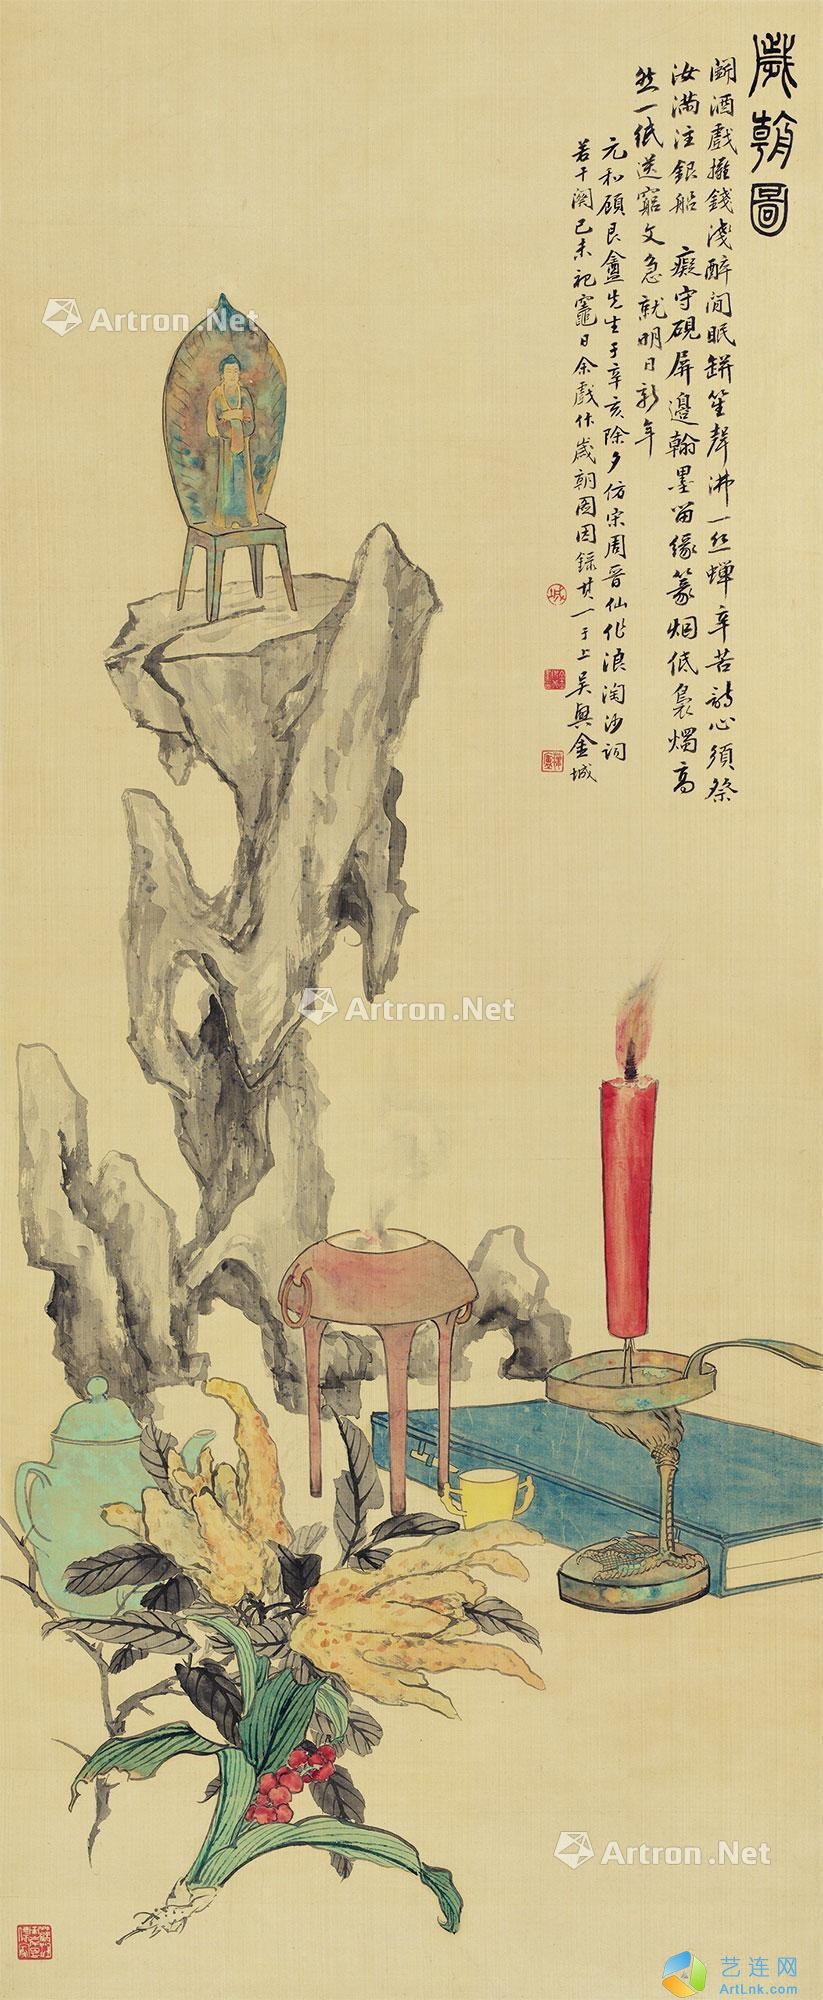 歲朝圖
鬭酒戲攤錢淺醉閒眠缾笙聲沸一絲蟬辛苦詩心須祭
汝滿注銀船 癡守硯屏邊翰墨留緣篆烟低裊燭高
然一紙送窮文急就明日新年
元和顧艮盦先生于辛亥除夕仿宋周晉仙作浪淘沙詞
若干闋己未祀竈日余戲作歲朝圖因錄其一于上吳興金城
城
Artron.Net
Artron.Net
Artron.Net
艺连网
ArtLnk.com